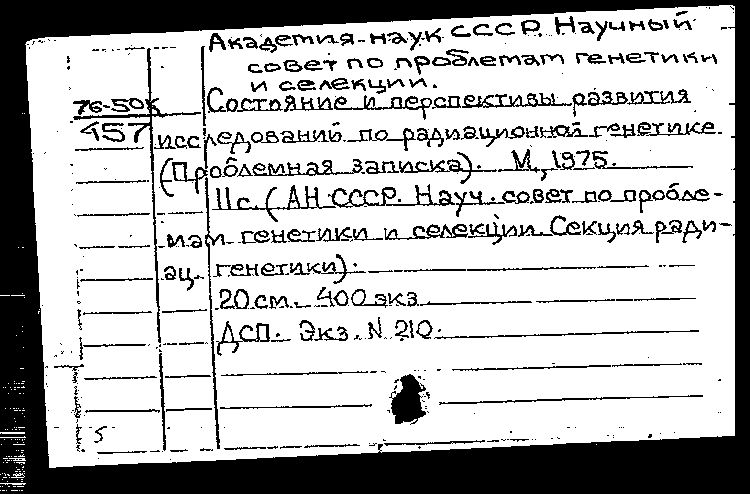 Академия наук СССР. Научный
совет по проблемам генетики
и селекции.
76-50к
457
Состояние и перспективы развития
исследований по радиационной генетике
(Проблемная записка). М., 1975.
11с. (АН СССР. Науч. совет по пробле-
мам генетики и селекции. Секция ради-
ац. генетики).
20 см. 400 экз.
ДСП. Экз. N 210.
5